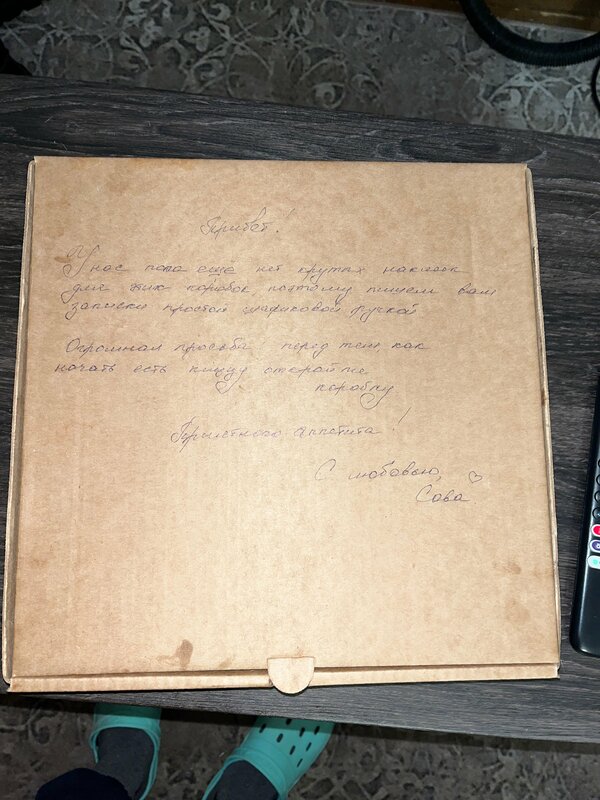 Привет!
У нас пока ещё нет крутых наклеек
для пик коробок поэтому пишем вам
записки простой шариковой ручкой
Огромная просьба! перед тем, как
начать есть пиццу откройте
коробку
Приятного аппетита!
С любовью,
Сова